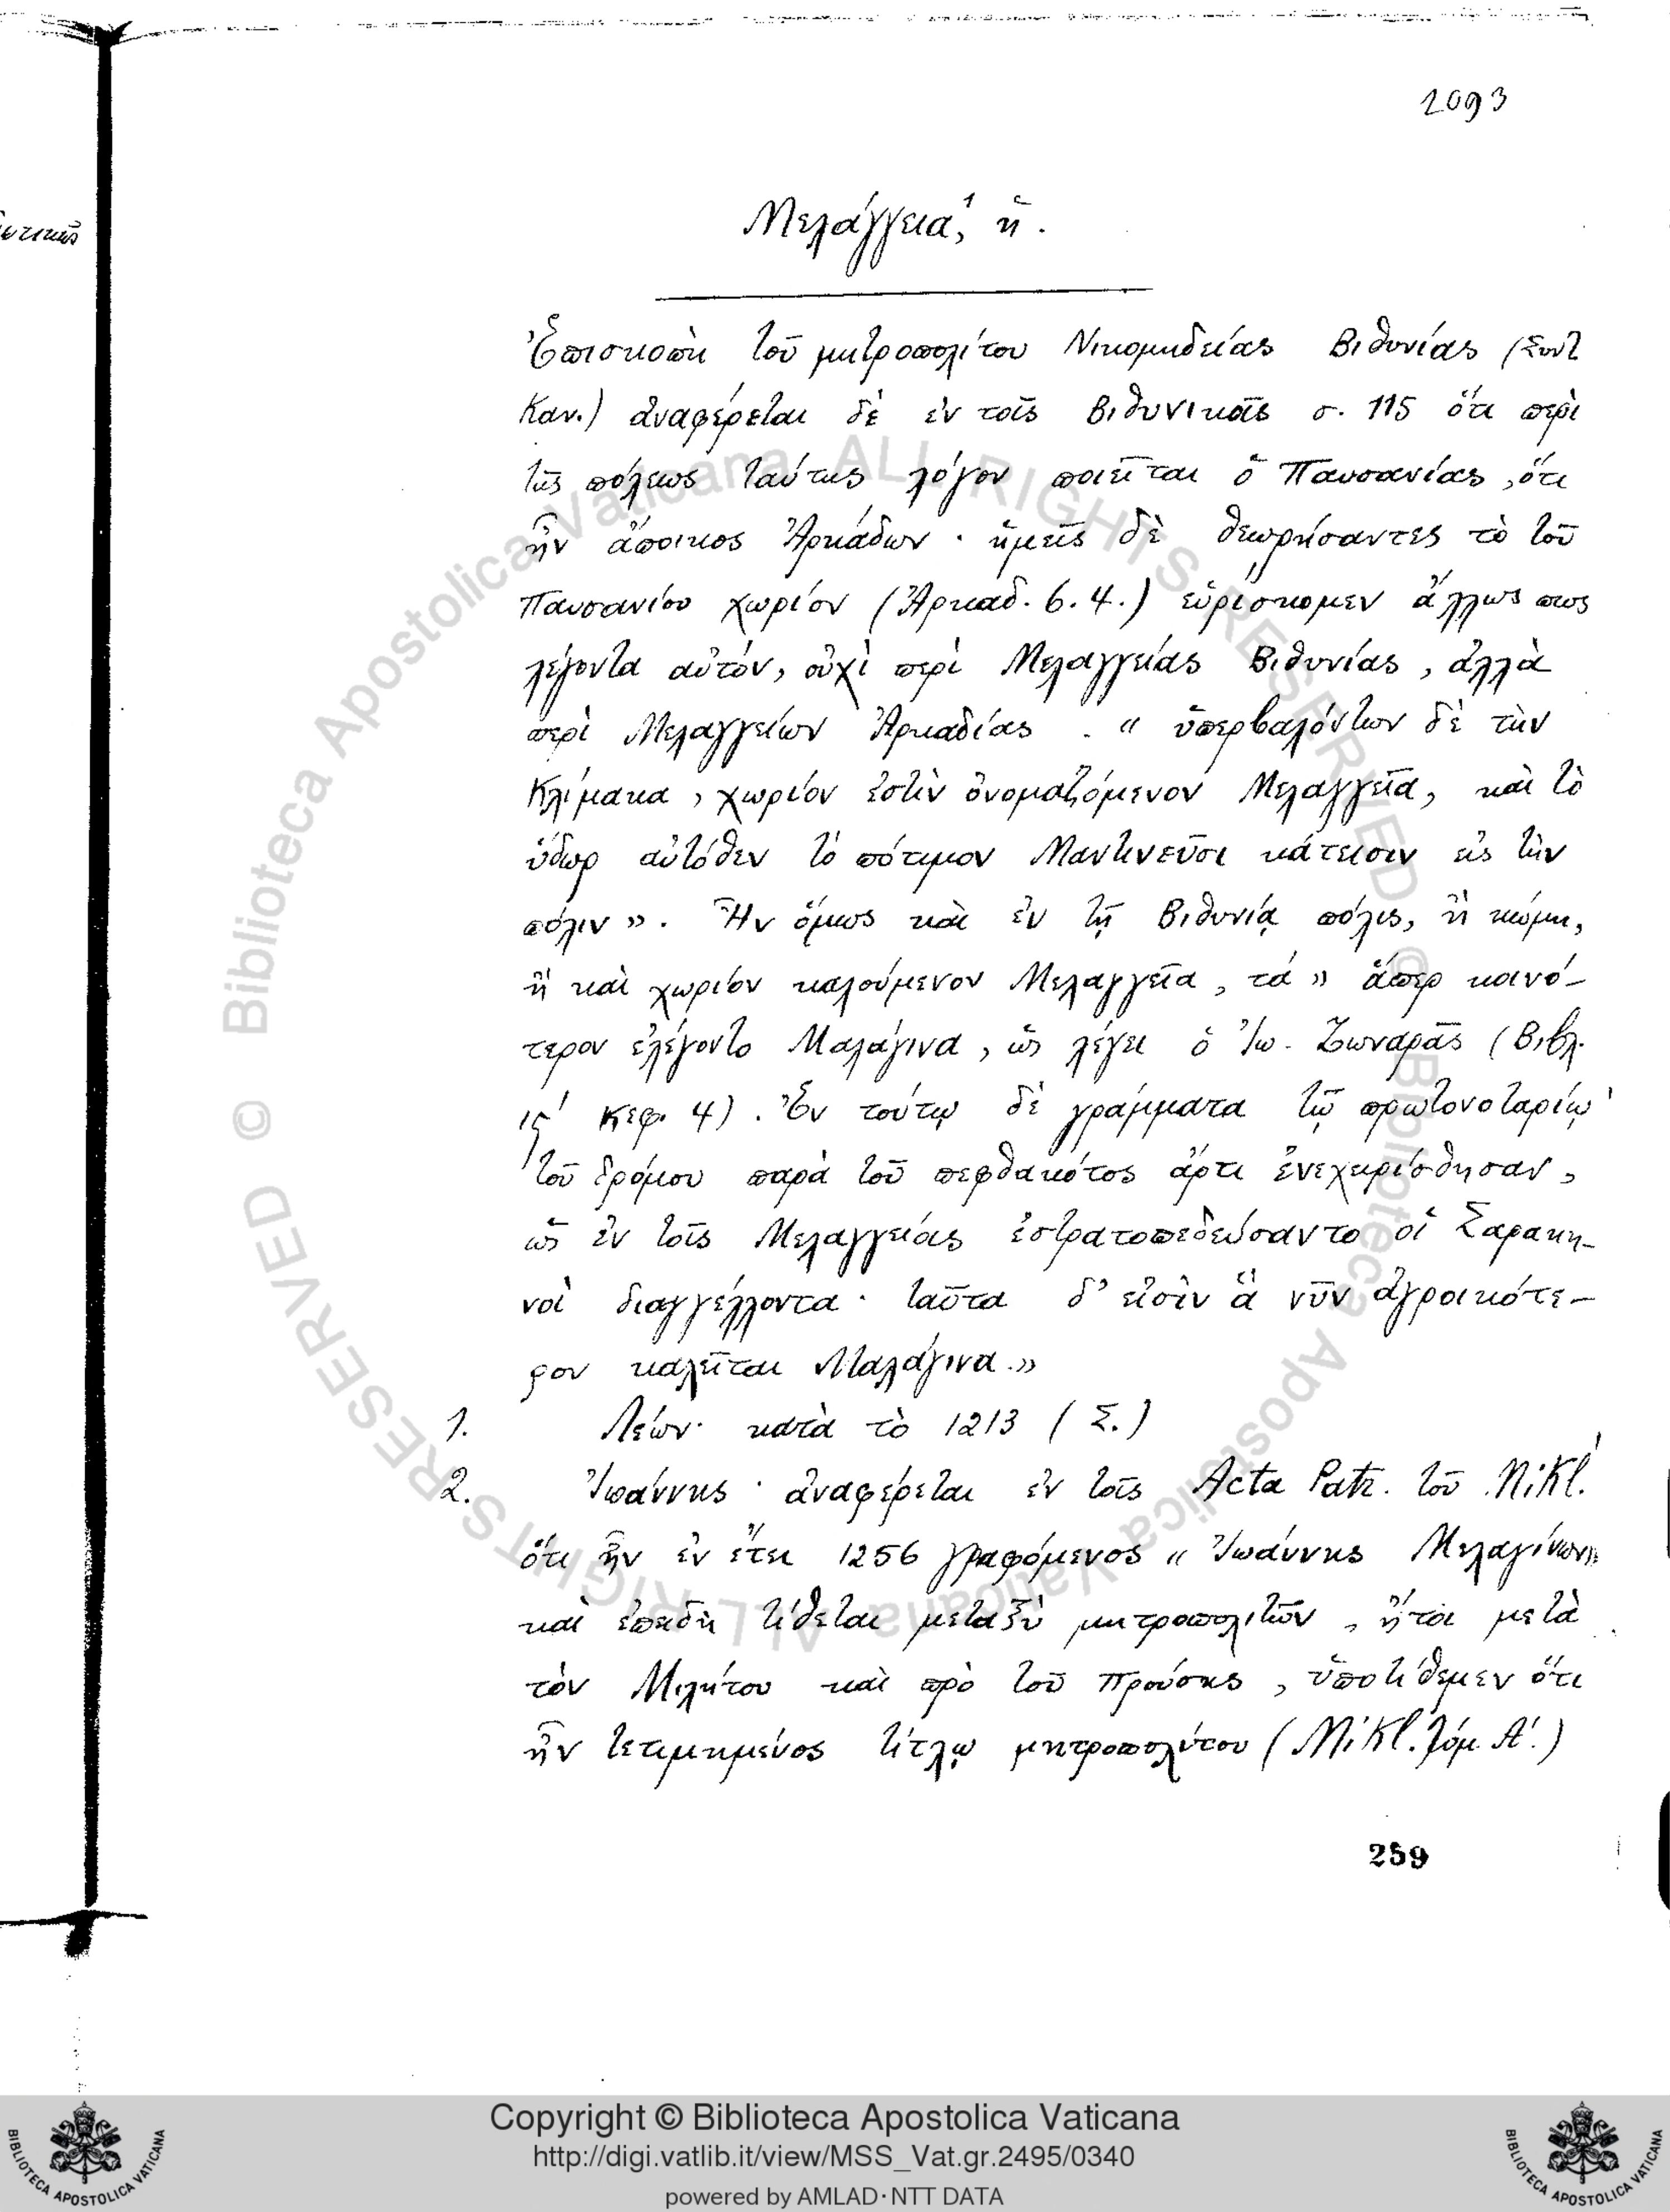 2093
Μελάγγεια¹, ἡ.
Ἐπισκοπὴ τοῦ μητροπολίτου Νικομηδείας Βιθυνίας (Συντ
Καν.) ἀναφέρεται δὲ ἐν τοῖς Βιθυνικοῖς σ. 115 ὅτι περὶ
τῆς πόλεως ταύτης λόγον ποιεῖται ὁ Παυσανίας, ὅτι
ἦν ἄποικος Ἀρκάδων · ἡμεῖς δὲ θεωρήσαντες τὸ τοῦ
Παυσανίου χωρίον (Ἀρκαδ. 6. 4.) εὑρίσκομεν ἄλλως πως
λέγοντα αὐτόν, οὐχὶ περὶ Μελαγγείας Βιθυνίας, ἀλλὰ
περὶ Μελαγγείων Ἀρκαδίας . « ὑπερβαλόντων δὲ τὴν
Κλίμακα, χωρίον ἐστὶν ὀνομαζόμενον Μελαγγεῖα, καὶ τὸ
ὕδωρ αὐτόθεν τὸ πότιμον Μαντινεῦσι κάτεισιν εἰς τὴν
πόλιν ». Ἦν ὅμως καὶ ἐν τῇ Βιθυνίᾳ πόλις, ἢ κώμη,
ἢ καὶ χωρίον καλούμενον Μελαγγεῖα, τά » ἅπερ κοινό-
τερον ἐλέγοντο Μαλάγινα, ὡς λέγει ὁ Ἰω. Ζωναρᾶς (Βιβλ.
ιϛ′ Κεφ. 4). Ἐν τούτῳ δὲ γράμματα τῷ πρωτονοταρίῳ
τοῦ δρόμου παρὰ τοῦ πεφθακότος ἄρτι ἐνεχειρίσθησαν,
ὡς ἐν τοῖς Μελαγγείας ἐστρατοπεδεύσαντο οἱ Σαρακη-
νοὶ διαγγέλλοντα · ταῦτα δ’ εἰσὶν ἃ νῦν ἀγροικότε-
ρον καλεῖται Μαλάγινα.»
1. Λέων · κατὰ τὸ 1213 (Σ.)
2. Ἰωάννης · ἀναφέρεται ἐν τοῖς Acta Patr. τοῦ Mikl.
ὅτι ἦν ἐν ἔτει 1256 γραφόμενος « Ἰωάννης Μελαγίνων»
καὶ ἐπειδὴ τίθεται μεταξὺ μητροπολιτῶν, ἤτοι μετὰ
τὸν Μιλήτου καὶ πρὸ τοῦ Προύσης, ὑποτίθεμεν ὅτι
ἦν τετιμημένος τίτλῳ μητροπολίτου (Mikl. Τόμ. Α′.)
259
© Biblioteca Apostolica Vaticana ALL RIGHTS RESERVED © Biblioteca Apostolica Vaticana ALL RIGHTS RESERVED
Copyright © Biblioteca Apostolica Vaticana
http://digi.vatlib.it/view/MSS_Vat.gr.2495/0340
powered by AMLAD·NTT DATA
BIBLIOTECA APOSTOLICA VATICANA
BIBLIOTECA APOSTOLICA VATICANA